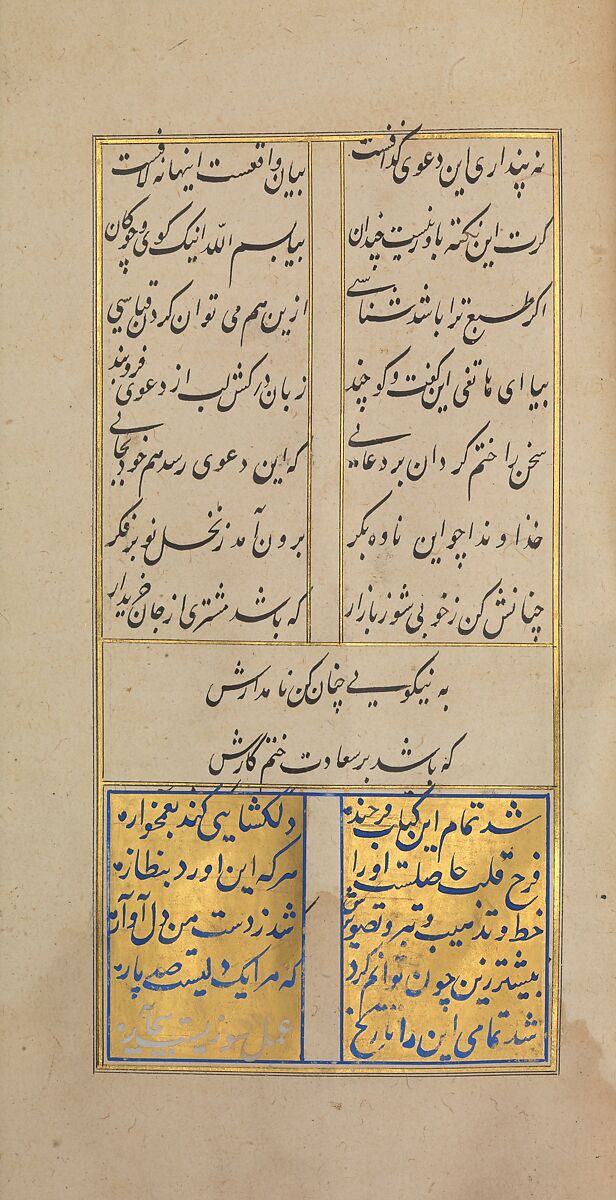 نه پنداری این دعوی گذافست بیان واقعست اینها نه لافست
کرت این نکته باور نیست چندان بیا بسم الله اینک کوی و چوکان
اکر طبع ترا باشد شناسی ازین هم می توان کردن قیاسی
بیا ای هاتفی این کفت و کو چند زبان درکش لب از دعوی فروبند
سخن را ختم کردان بر دعائی که این دعوی رسد هم خود بجائی
خداوندا چو این ناوه بکر برون آمد ز نخل نوبر فکر
چنانش کن ز خوبی شور بازار که باشد مشتری از جان خریدار
به نیکویی چنان کن نامدارش
که باشد بر سعادت ختم کارش
شد تمام این کتاب فرخنده دلکشایی کند بغمخواره
فرح قلب حاصلست او را هر که این اورد بنظاره
خط و تذهیب و تصویرش شد ز دست من دل آواره
بیشتر زین چون توانم کرد که مرا یک دلیست صد پاره
شد تمامی این را تاریخ عمل سوزیست بیچاره